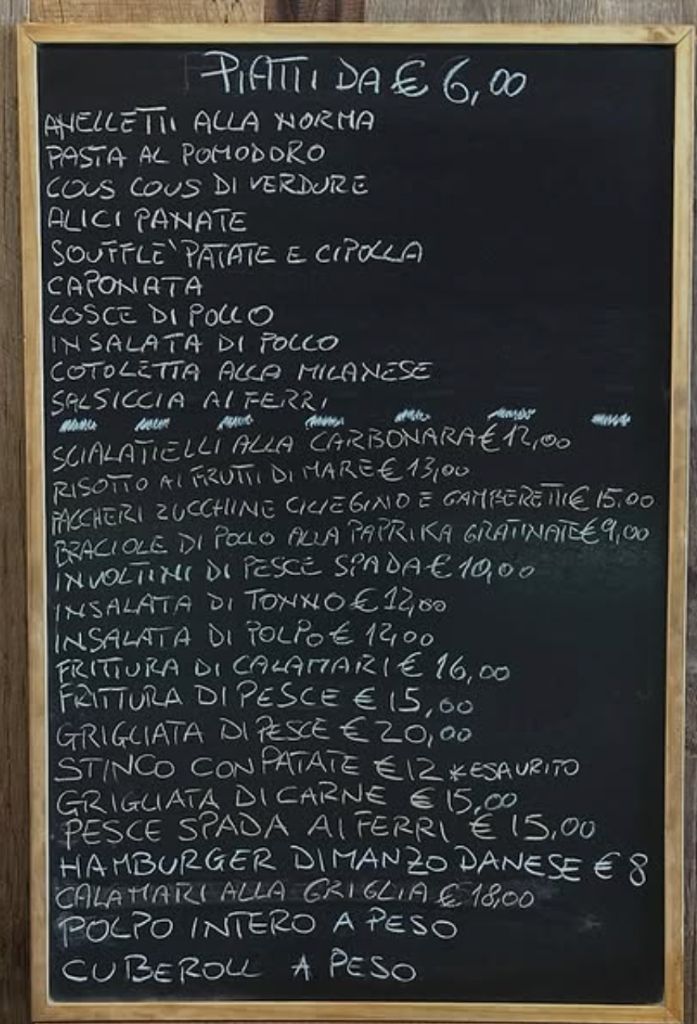 PIATTI DA € 6,00
ANELLETTI ALLA NORMA
PASTA AL POMODORO
COUS COUS DI VERDURE
ALICI PANATE
SOUFFLE' PATATE E CIPOLLA
CAPONATA
COSCE DI POLLO
INSALATA DI POLLO
COTOLETTA ALLA MILANESE
SALSICCIA AI FERRI
SCIALATIELLI ALLA CARBONARA € 12,00
RISOTTO AI FRUTTI DI MARE € 13,00
PACCHERI ZUCCHINE CILIEGINO E GAMBERETTI € 15,00
BRACIOLE DI POLLO ALLA PAPRIKA GRATINATE € 9,00
INVOLTINI DI PESCE SPADA € 10,00
INSALATA DI TONNO € 12,00
INSALATA DI POLPO € 12,00
FRITTURA DI CALAMARI € 16,00
FRITTURA DI PESCE € 15,00
GRIGLIATA DI PESCE € 20,00
STINCO CON PATATE € 12 *ESAURITO
GRIGLIATA DI CARNE € 15,00
PESCE SPADA AI FERRI € 15,00
HAMBURGER DI MANZO DANESE € 8
CALAMARI ALLA GRIGLIA € 18,00
POLPO INTERO A PESO
CUBEROLL A PESO